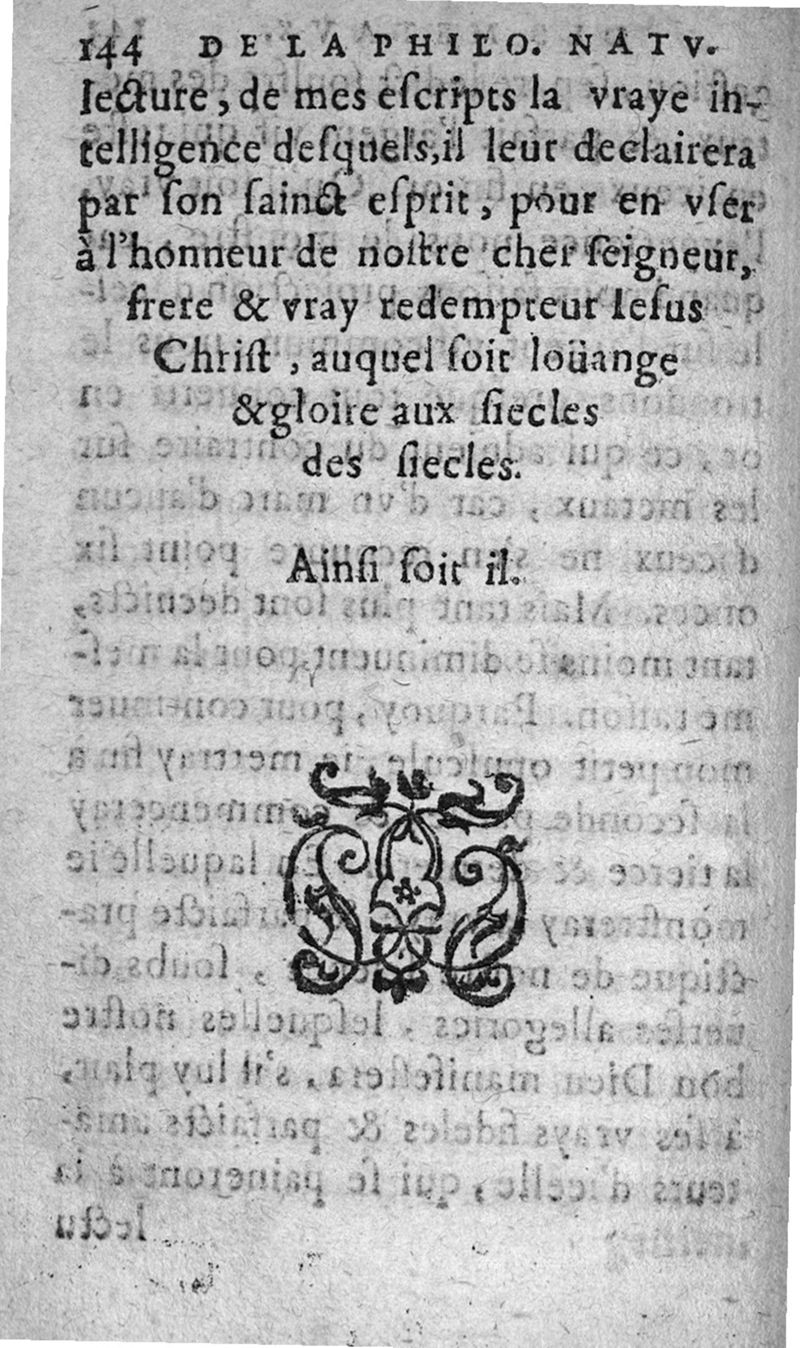 144 DE LA PHILO. NATV.
lecture, de mes eſcripts la vraye in-
telligence deſquels, il leur declairera
par ſon ſainct eſprit, pour en vſer
à l'honneur de noſtre cher ſeigneur,
frere & vray redempteur Ieſus
Chriſt, auquel ſoit loüange
& gloire aux ſiecles
des ſiecles.
Ainſi ſoit il.